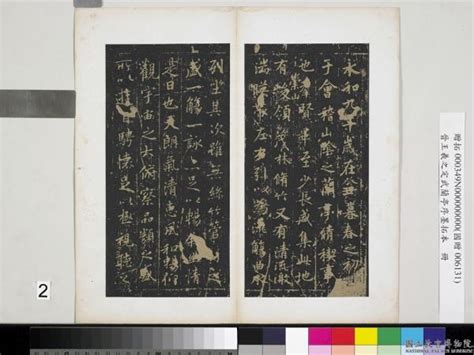 永和九年歲在癸丑暮春之初
于會稽山陰之蘭亭脩禊事
也羣賢畢至少長咸集此地
有峻領茂林脩竹又有清流激
湍暎帶左右引以為流觴曲水
列坐其次雖無絲竹管弦之
盛一觴一詠亦足以暢敘幽情
是日也天朗氣清惠風和暢仰
觀宇宙之大俯察品類之盛
所以遊目騁懷足以極視聽之
贈拓 000349N000000000(國贈 006131)
晉王羲之定武蘭亭序墨拓本 冊
2
國立故宮博物院
NATIONAL PALACE MUSEUM